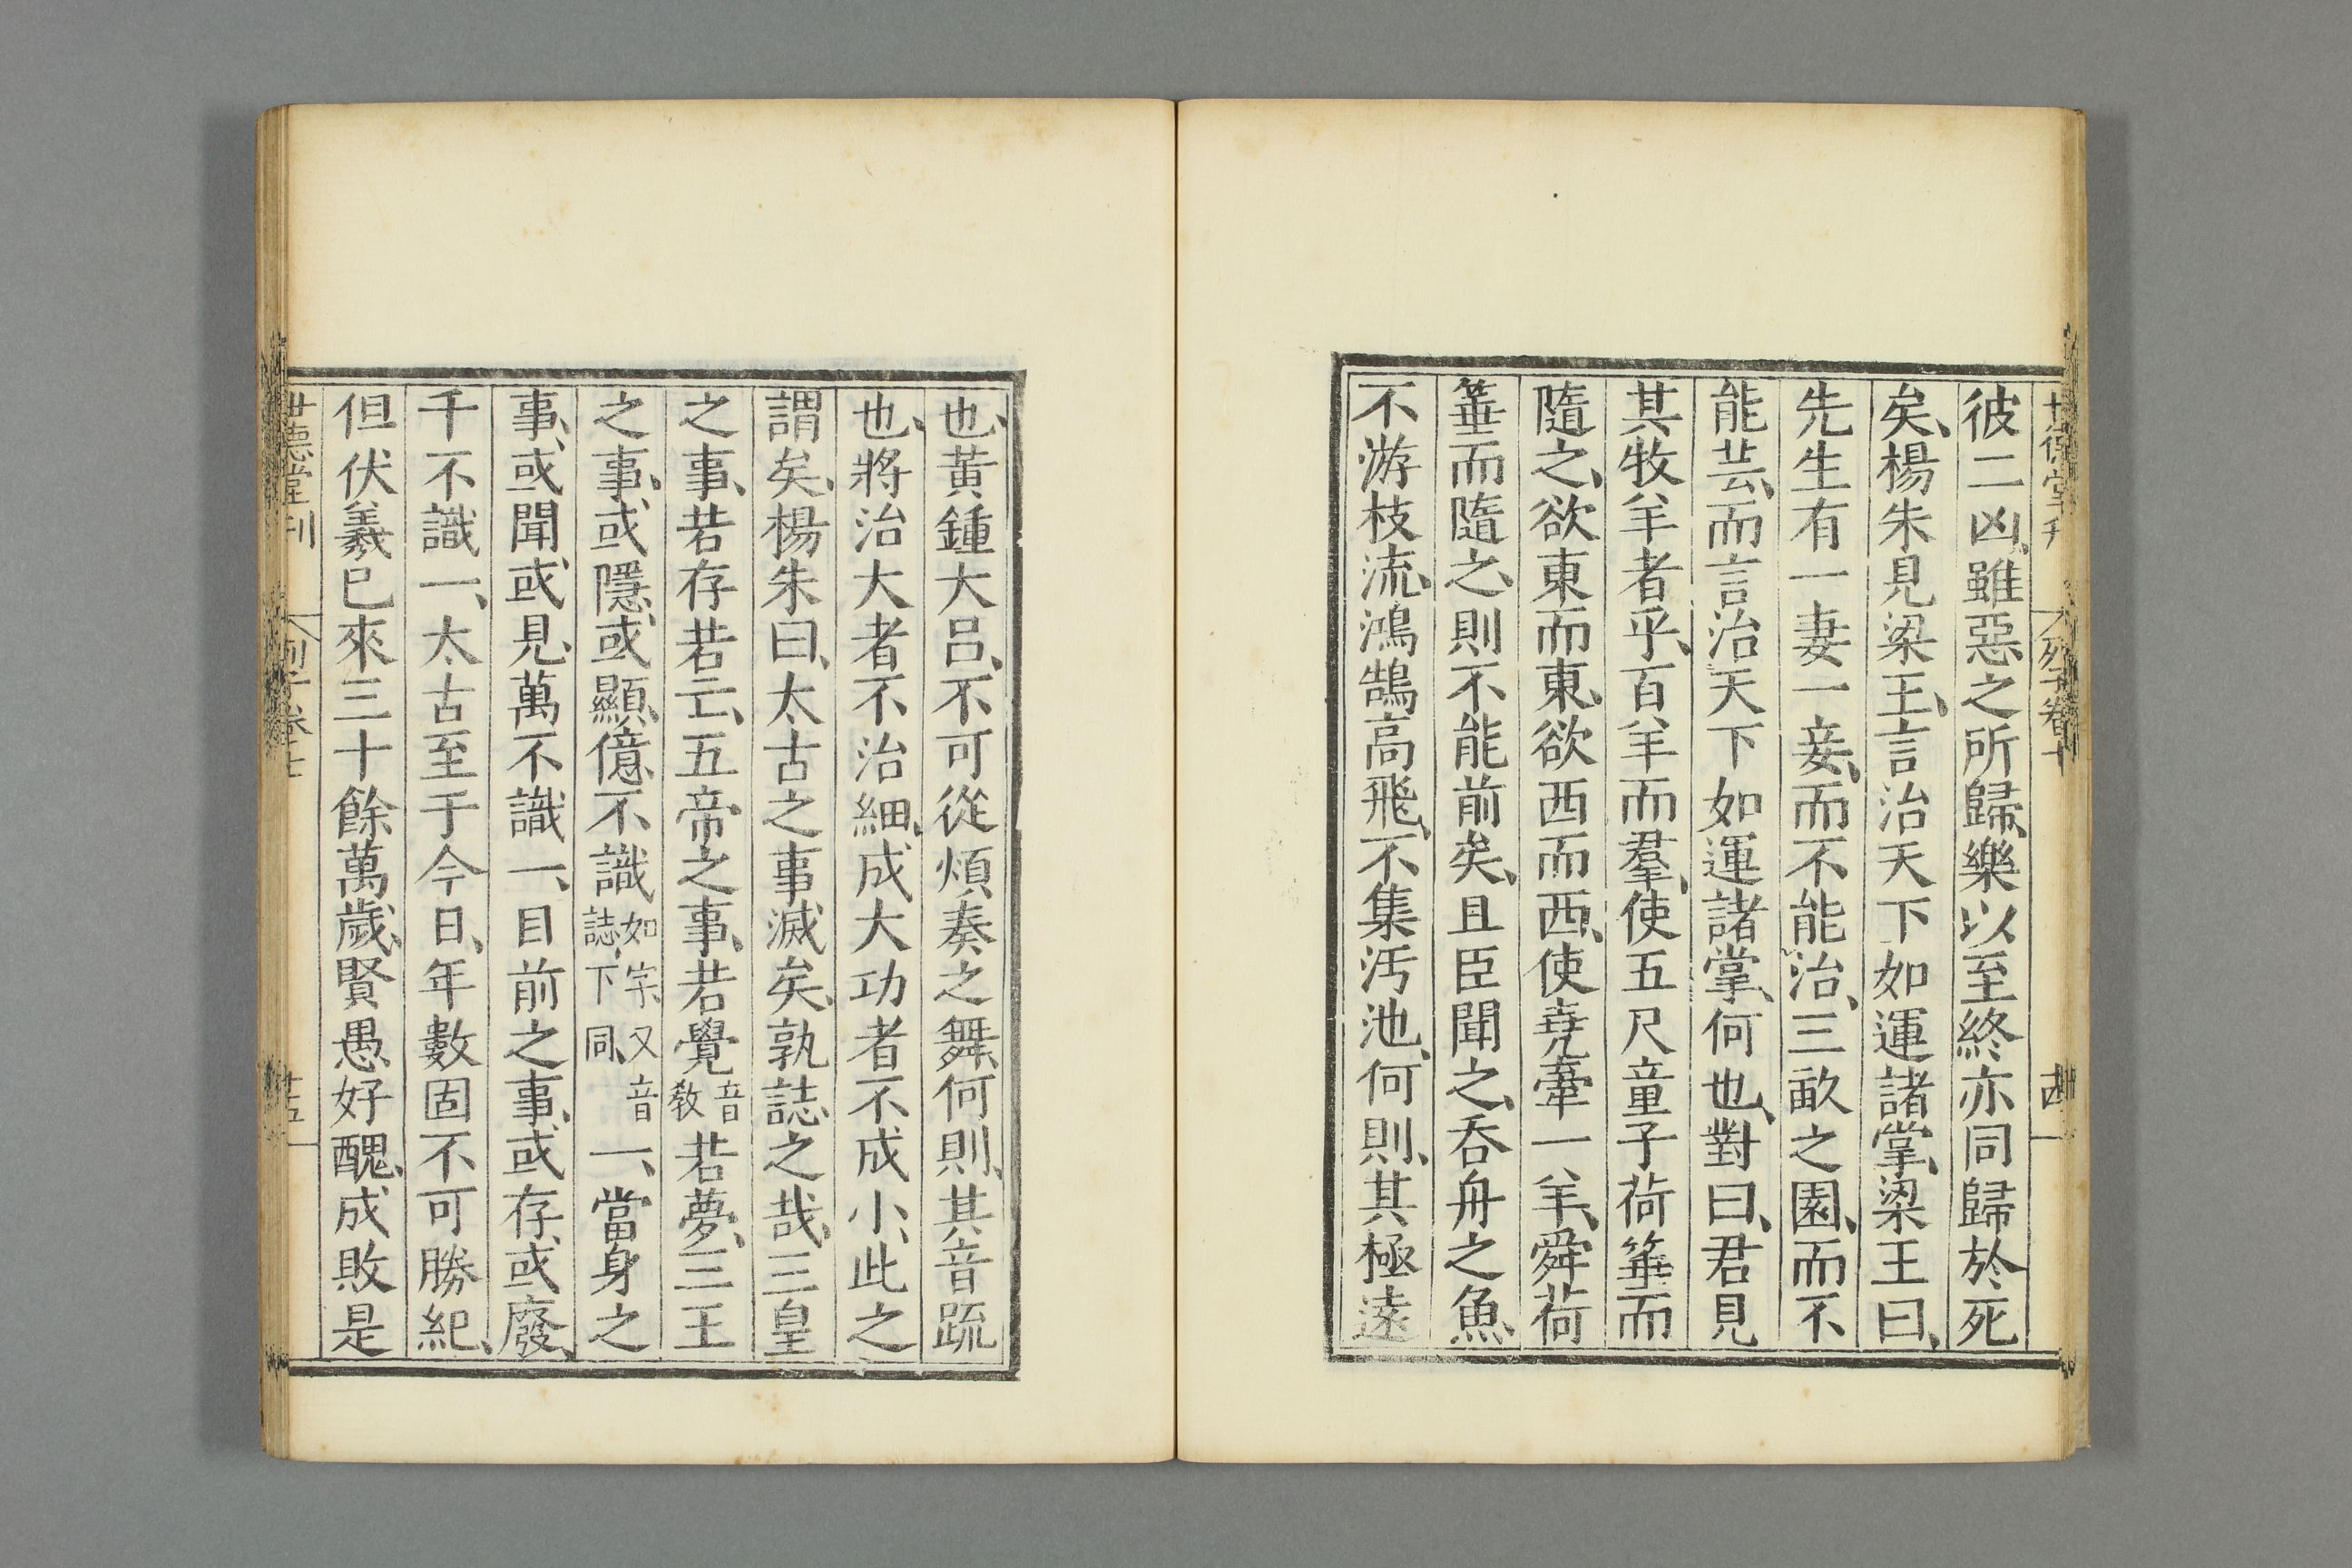 彼二凶、雖惡之所歸、樂以至終、亦同歸於死
矣、楊朱見梁王、言治天下如運諸掌、梁王曰、
先生有一妻一妾、而不能治、三畝之園、而不
能芸、而言治天下如運諸掌、何也、對曰、君見
其牧羊者乎、百羊而羣、使五尺童子荷箠而
隨之、欲東而東、欲西而西、使堯牽一羊、舜荷
箠而隨之、則不能前矣、且臣聞之、吞舟之魚、
不游枝流、鴻鵠高飛、不集汚池、何則、其極遠
也、黃鍾大呂、不可從煩奏之舞、何則、其音䟽
也、將治大者不治細、成大功者不成小、此之
謂矣、楊朱曰、太古之事滅矣、孰誌之哉、三皇
之事、若存若亡、五帝之事、若覺音教若夢、三王
之事、或隱、或顯、億不識如字、又音誌、下同、一、當身之
事、或聞或見、萬不識一、目前之事、或存、或廢、
千不識一、太古至于今日、年數固不可勝紀、
但伏羲已來三十餘萬歲、賢愚好醜、成敗是
世德堂刊
列子卷七